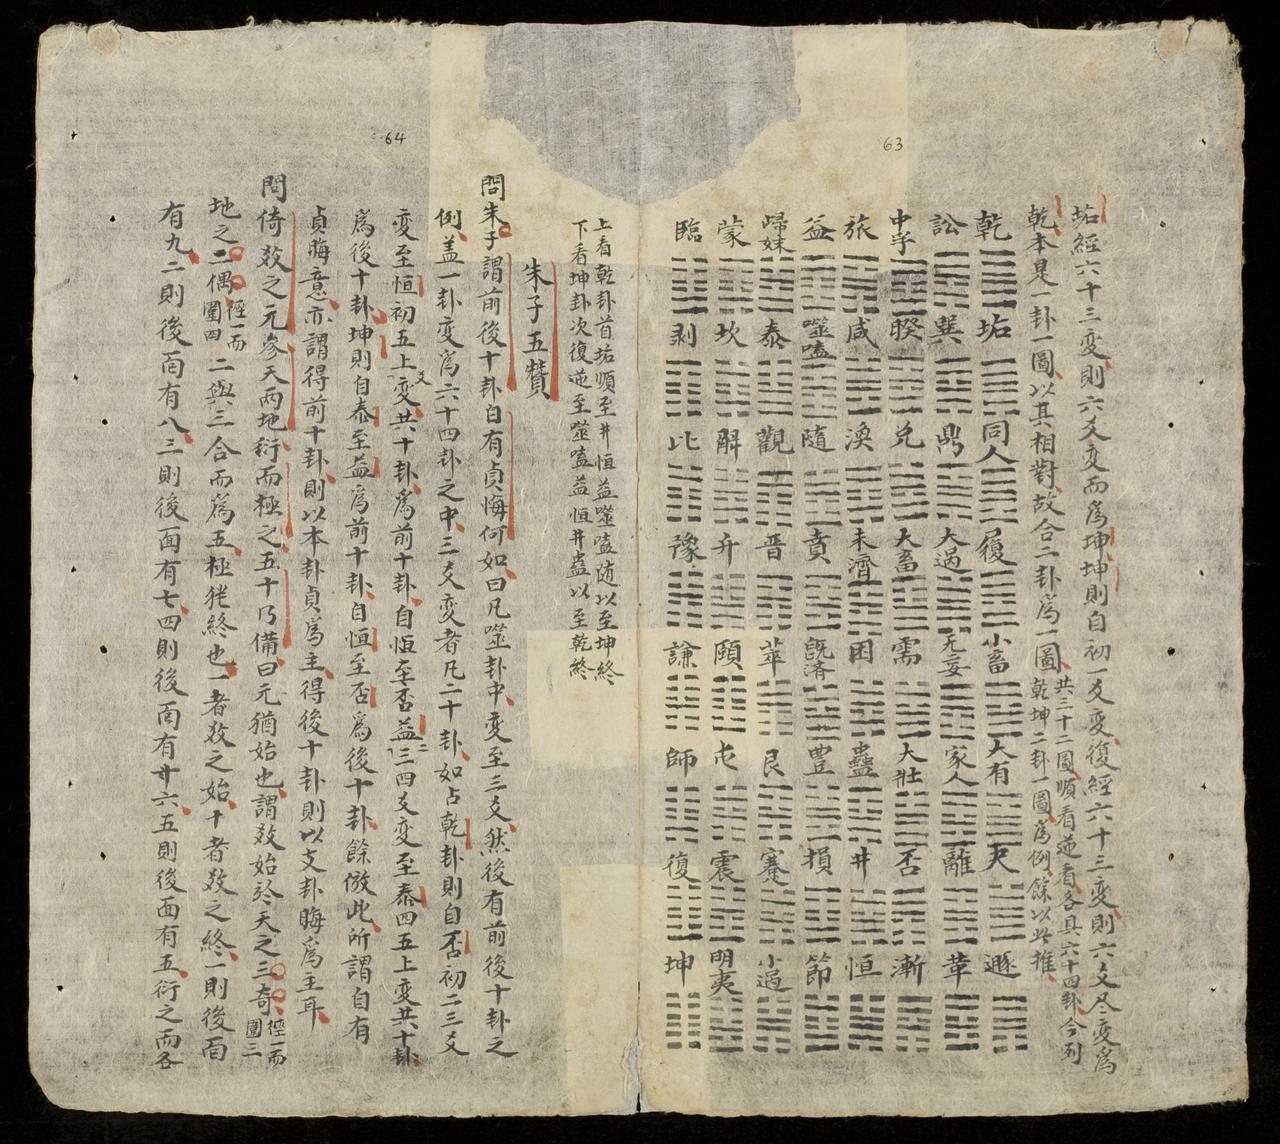 垢經六十三変則六爻変而為坤坤則自初一爻変復經六十三変則六爻尽変為
乾本是一卦一圖以其相對故合二卦為一圖
共三十二圖順看逆看各具六十四卦今列
乾坤二卦一圖為例餘以此推
乾 垢 同人 履 小畜 大有 夬 遯
訟 巽 鼎 大過 无妄 家人 離 革
中孚 睽 兌 大畜 需 大壯 否 漸
旅 咸 渙 未濟 困 蠱 井 恒
益 噬嗑 隨 賁 既済 豊 損 節
歸妹 泰 觀 晋 萃 艮 蹇 小過
蒙 坎 解 升 頤 屯 震 明夷
臨 剥 比 豫 謙 師 復 坤
上看乾卦首垢順至井恒益噬嗑随以至坤終
下看坤卦次復逆至噬嗑益恒井蠱以至乾終
63
朱子五贊
問朱子謂前後十卦自有貞悔何如曰凡噬卦中変至三爻然後有前後十卦之
例盖一卦変為六十四卦之中三爻変者凡二十卦如占乾卦則自否初二三爻
変至恒初五上変共十卦為前十卦自恒至否益三四爻変至泰四五上変共十卦
為後十卦坤則自泰至益為前十卦自恒至否為後十卦餘倣此所謂自有
貞晦意亦謂得前十卦則以本卦貞為主得後十卦則以支卦晦為主耳
問倚数之元参天両地衍而極之五十乃備曰元猶始也謂数始於天之三奇徑一而圍三
地之二偶徑一而圍四二與三合而為五極猶終也一者数之始十者数之終一則後面
有九二則後面有八三則後面有七四則後面有廾六五則後面有五衍之而各
64